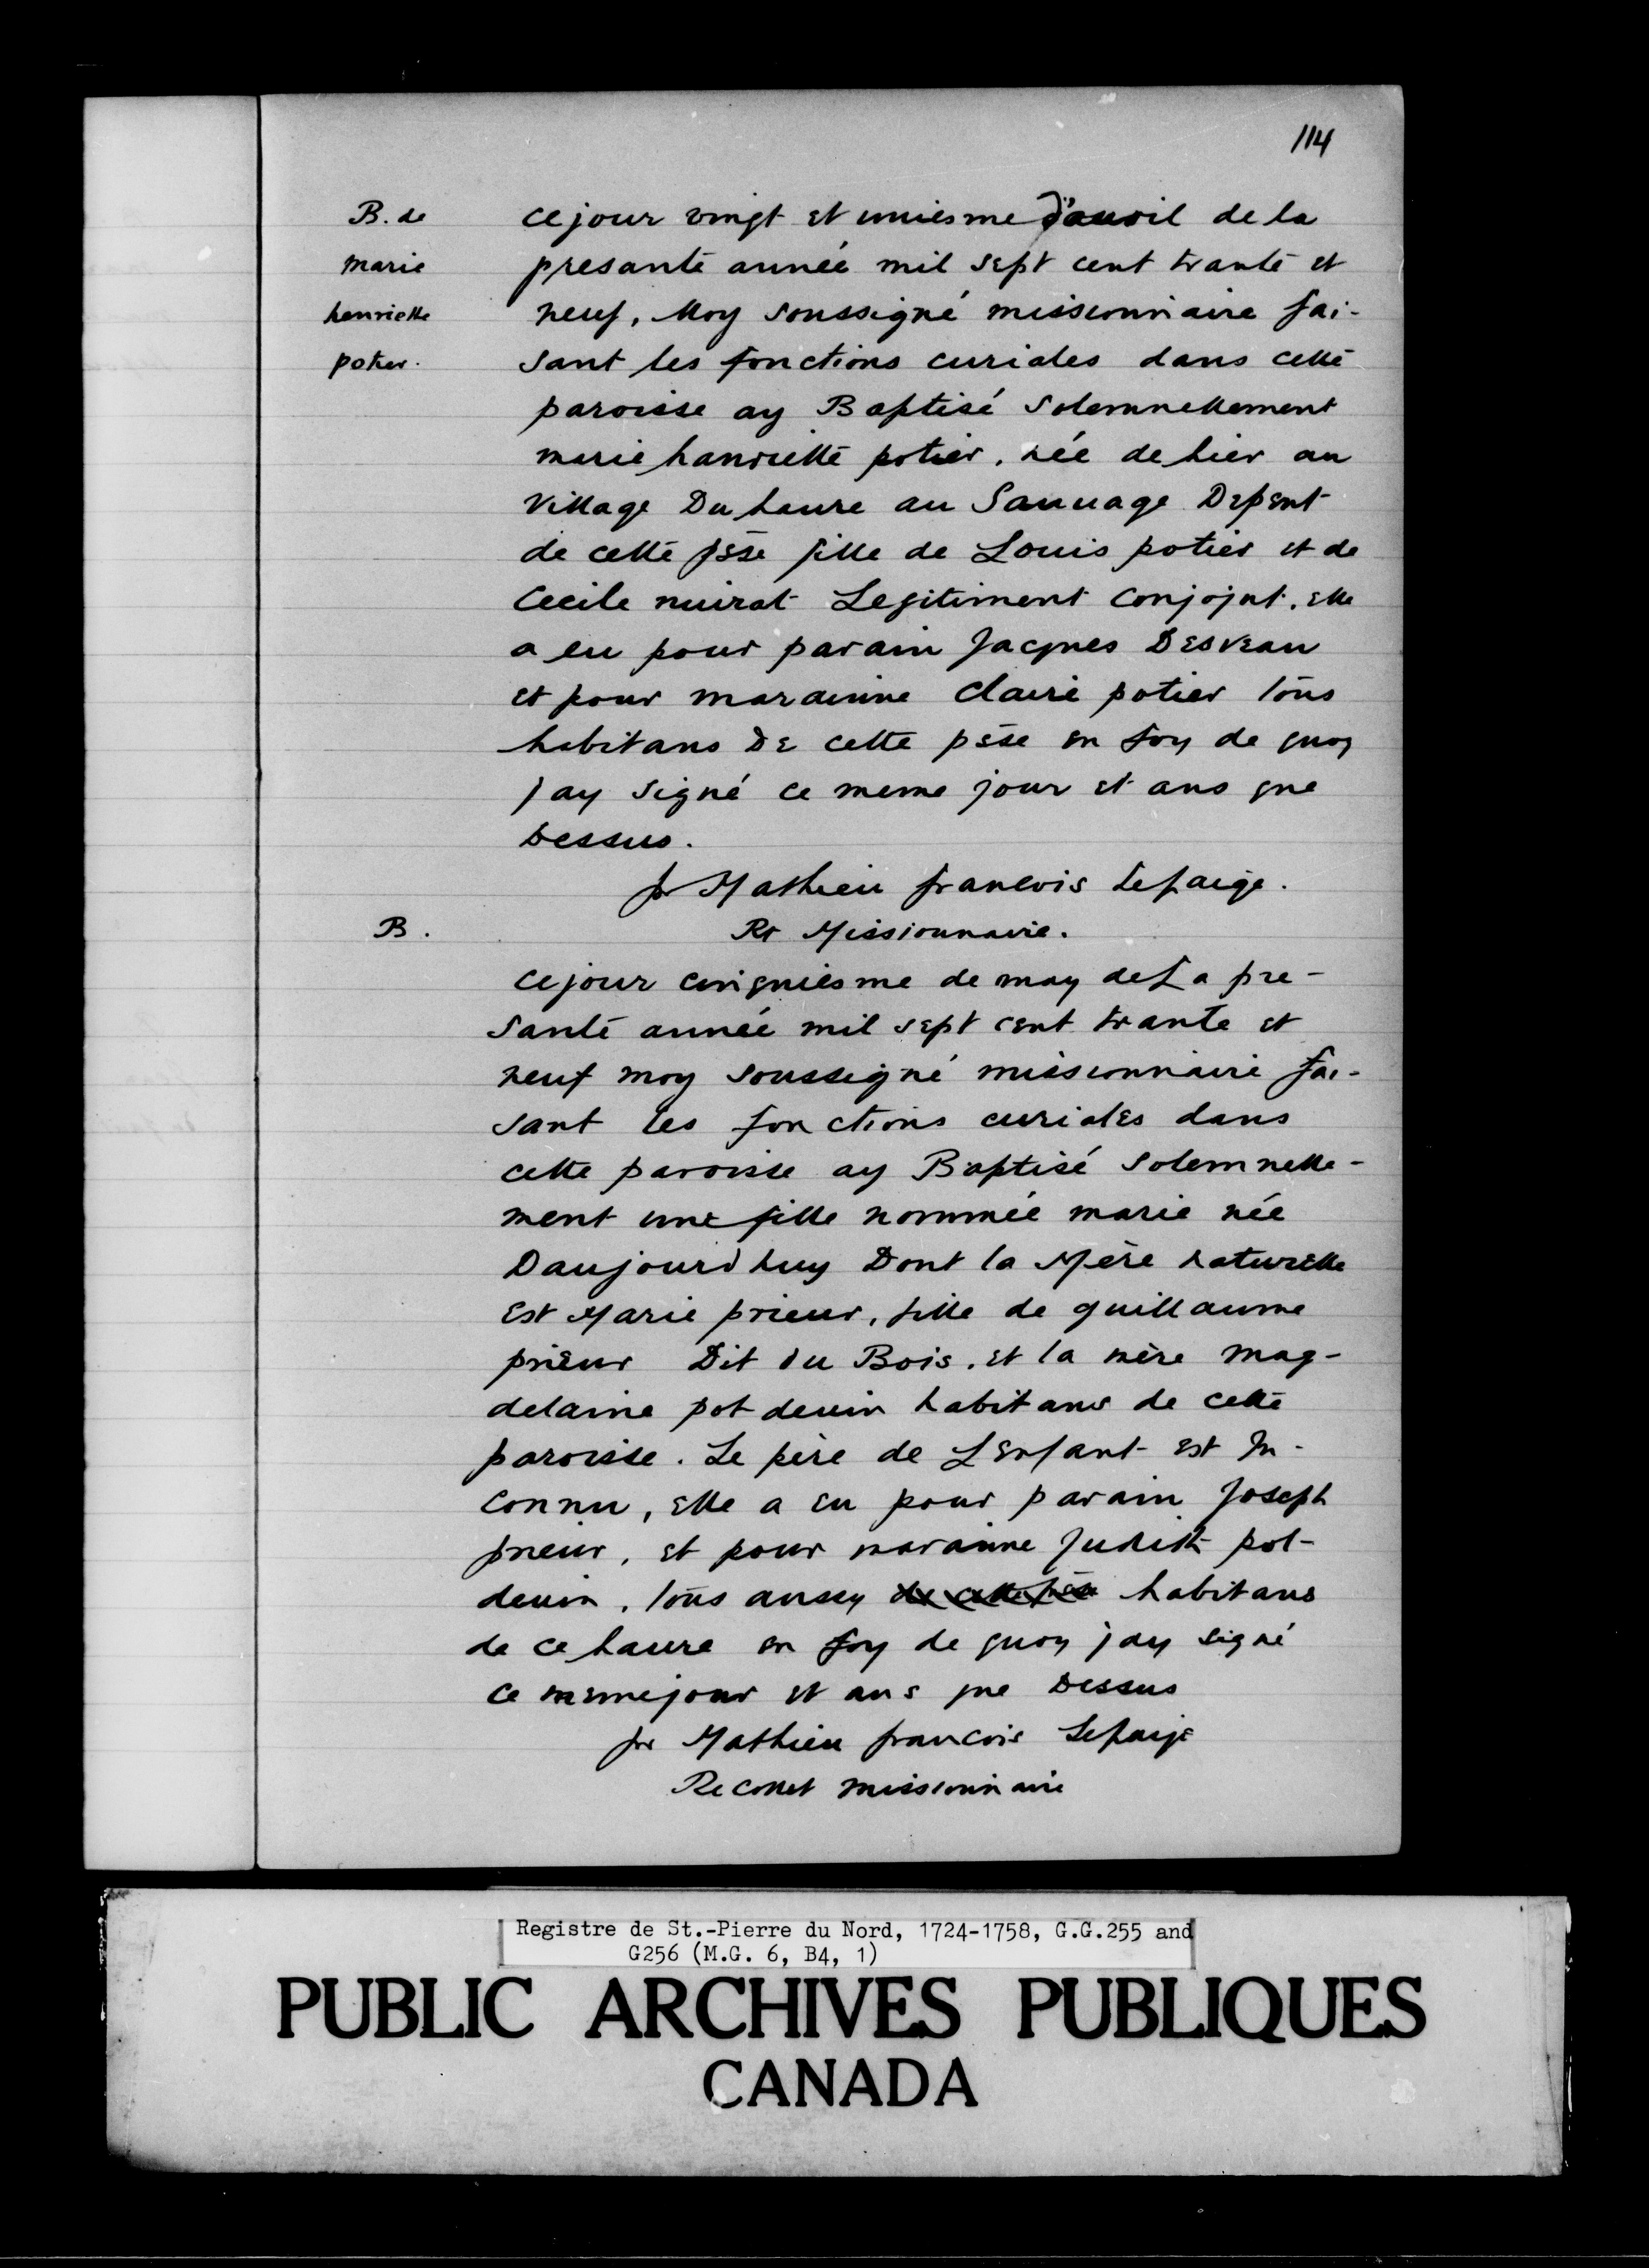 114
B. de
marie
henriette
potier.
ce jour vingt et uniesme d'auril de la
presante année mil sept cent trante et
neuf, Moy soussigné missionnaire fai-
sant les fonctions curiales dans cette
paroisse ay Baptisé solemnellement
marie hanriette potier, née de hier au
village Du haure au Sauuage Depent
de cette psse fille de Louis potier et de
Cecile nuirat Legitiment conjojnt, elle
a eu pour parain Jacques Desveau
et pour marainne Claire potier tous
habitans De cette psse en foy de quoy
jay signé ce meme jour et ans que
Dessus.
fr Mathieu francois Lepaige.
B.
Rt Missionnaire.
ce jour cinquiesme de may de La pre-
sante année mil sept cent trante et
neuf moy soussigné missionnaire fai-
sant les fonctions curiales dans
cette paroisse ay Baptisé solemnelle-
ment une fille nommée marie née
Daujourdhuy Dont la Mère naturelle
est Marie prieur, fille de guillaume
prieur Dit du Bois, et la mère mag-
delaine pot deuin habitans de cette
paroisse. Le père de L'enfant est In-
connu, elle a eu pour parain Joseph
prieur, et pour marainne Judith pot-
deuin, tous aussy de cette psse habitans
de ce haure en foy de quoy jay signé
ce meme jour et ans que Dessus
fr Mathieu francois Lepaige
Recollet missionnaire
Registre de St.-Pierre du Nord, 1724-1758, G.G.255 and
G256 (M.G. 6, B4, 1)
PUBLIC ARCHIVES PUBLIQUES
CANADA